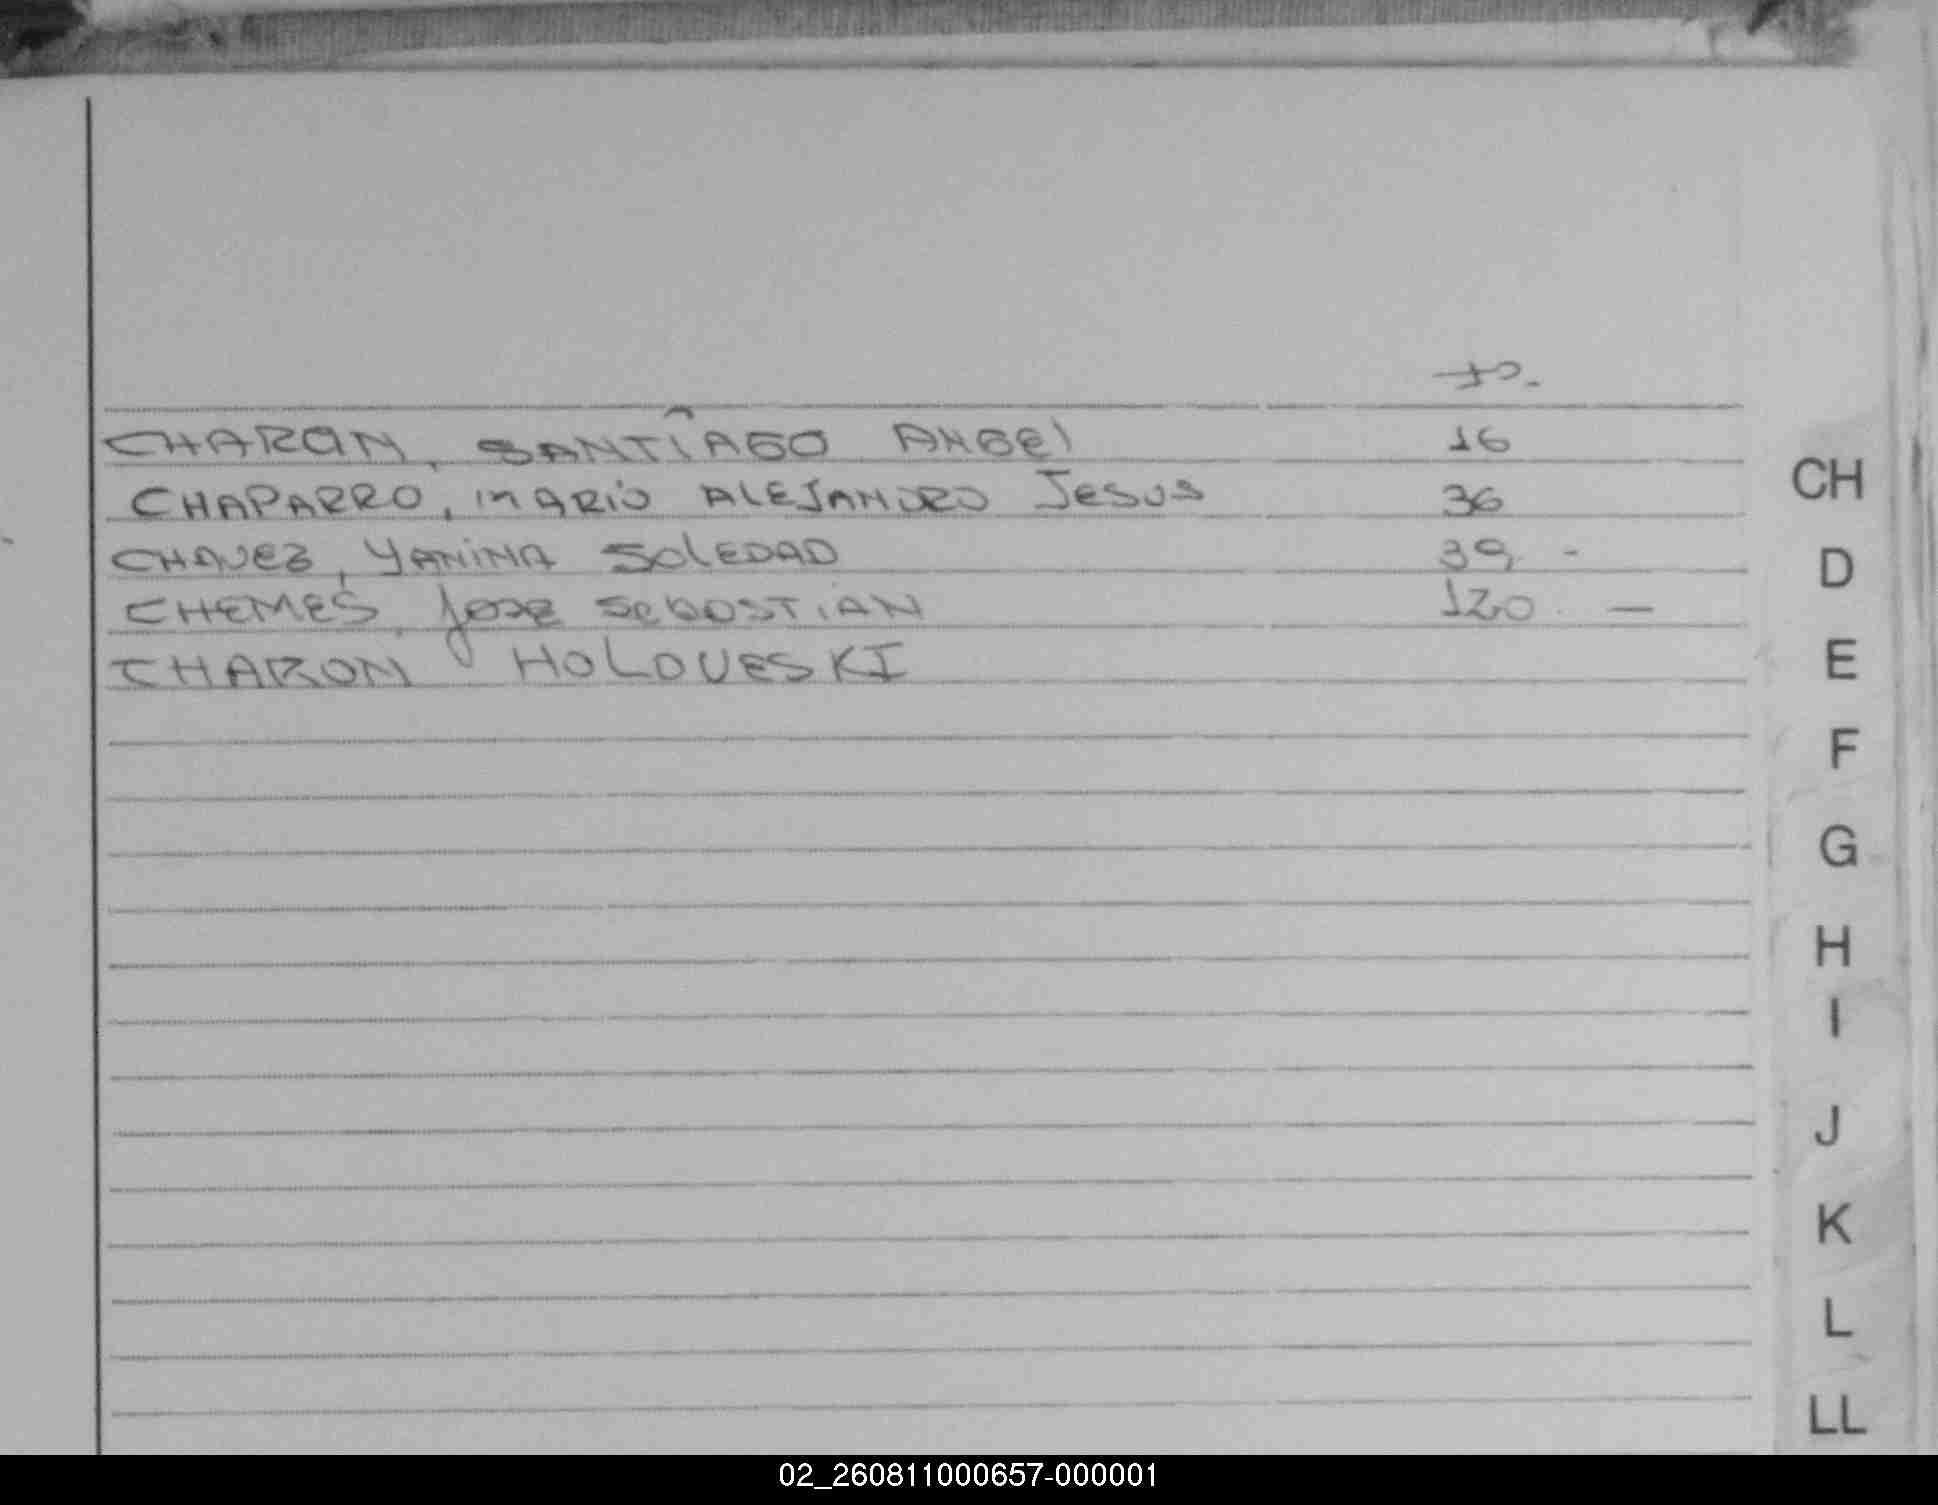 fo.
CHARON, SANTIAGO ANGEl 16
CHAPARRO, MARIO ALEJANDRO JESUS 36
CHAVEZ, YANINA SOLEDAD 39 -
CHEMES, JOSE SEBASTIAN 120 —
CHARON HOLOVESKI
CH
D
E
F
G
H
I
J
K
L
LL
02_260811000657-000001